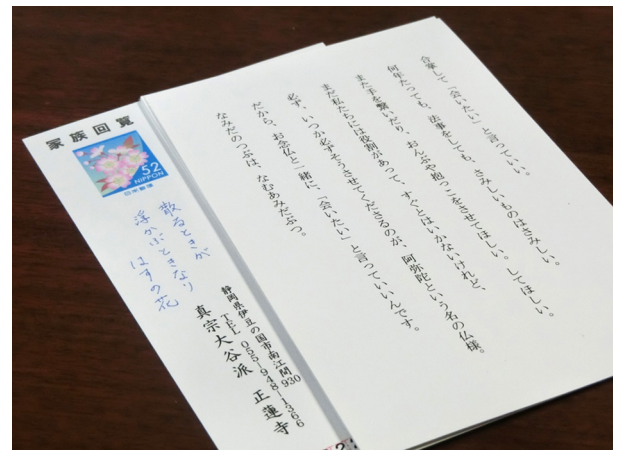 合掌して「会いたい」と言っていい。
何年たっても、法事をしても、さみしいものはさみしい。
また手を繋いだり、おんぶや抱っこをさせてほしい。してほしい。
まだ私たちには役割があって、すぐとはいかないけれど、
必ず、いつか必ずそうさせてくださるのが、阿弥陀という名の仏様。
だから、お念仏と一緒に、「会いたい」と言っていいんです。
なみだのつぶは、なむあみだぶつ。
家族回覧
52
NIPPON
日本郵便
散るときが
浮かぶときなり
はすの花
静岡県伊豆の国市南江間930
TEL 055-948-1366
真宗大谷派 正蓮寺